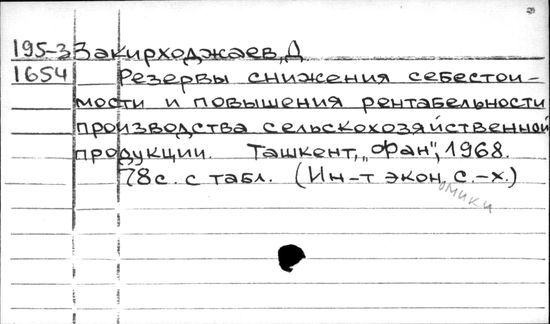 195-3 Закирходжаев, Д.
1654 Резервы снижения себестои-
мости и повышения рентабельности
производства сельскохозяйственной
продукции. Ташкент, „Фан", 1968.
78с. с табл. (Ин-т экономики с.-х.)